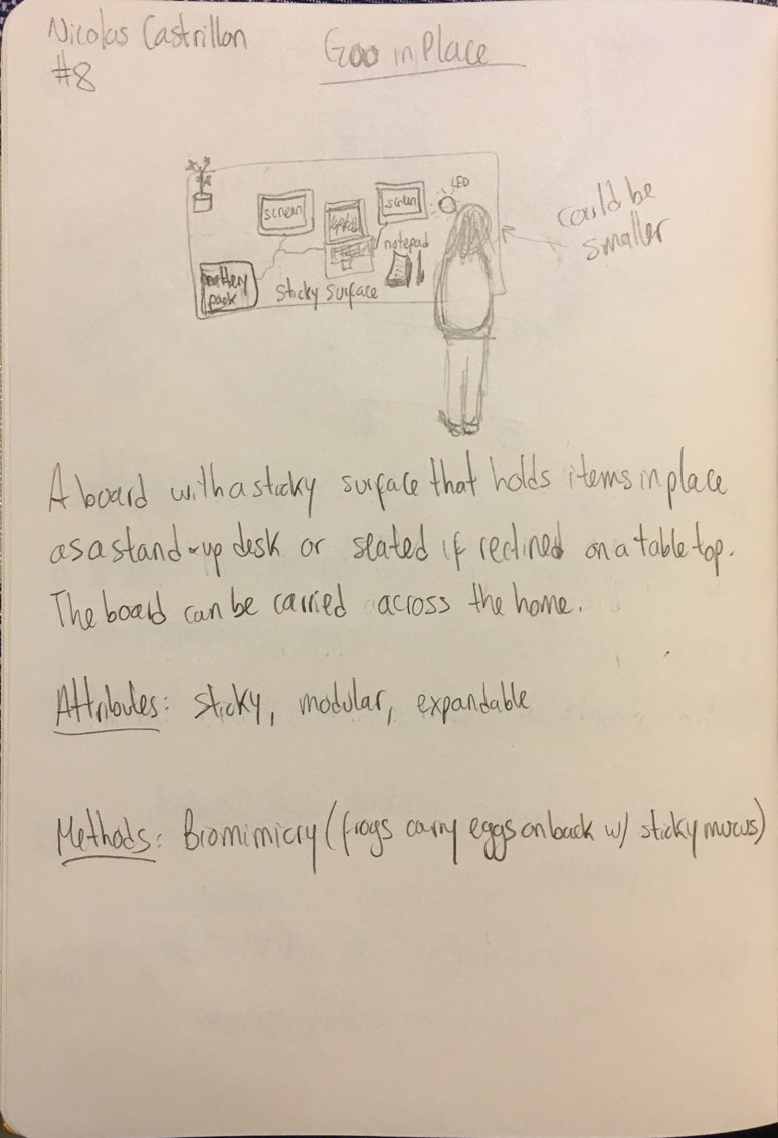 Nicolas Castrillon
#8
Goo in Place
LED
screen
laptop
screen
notepad
battery
pack
sticky surface
could be
smaller
A board with a sticky surface that holds items in place
as a stand-up desk or seated if reclined on a table top.
The board can be carried across the home.
Attributes: sticky, modular, expandable
Methods: Biomimicry (frogs carry eggs on back w/ sticky mucus)